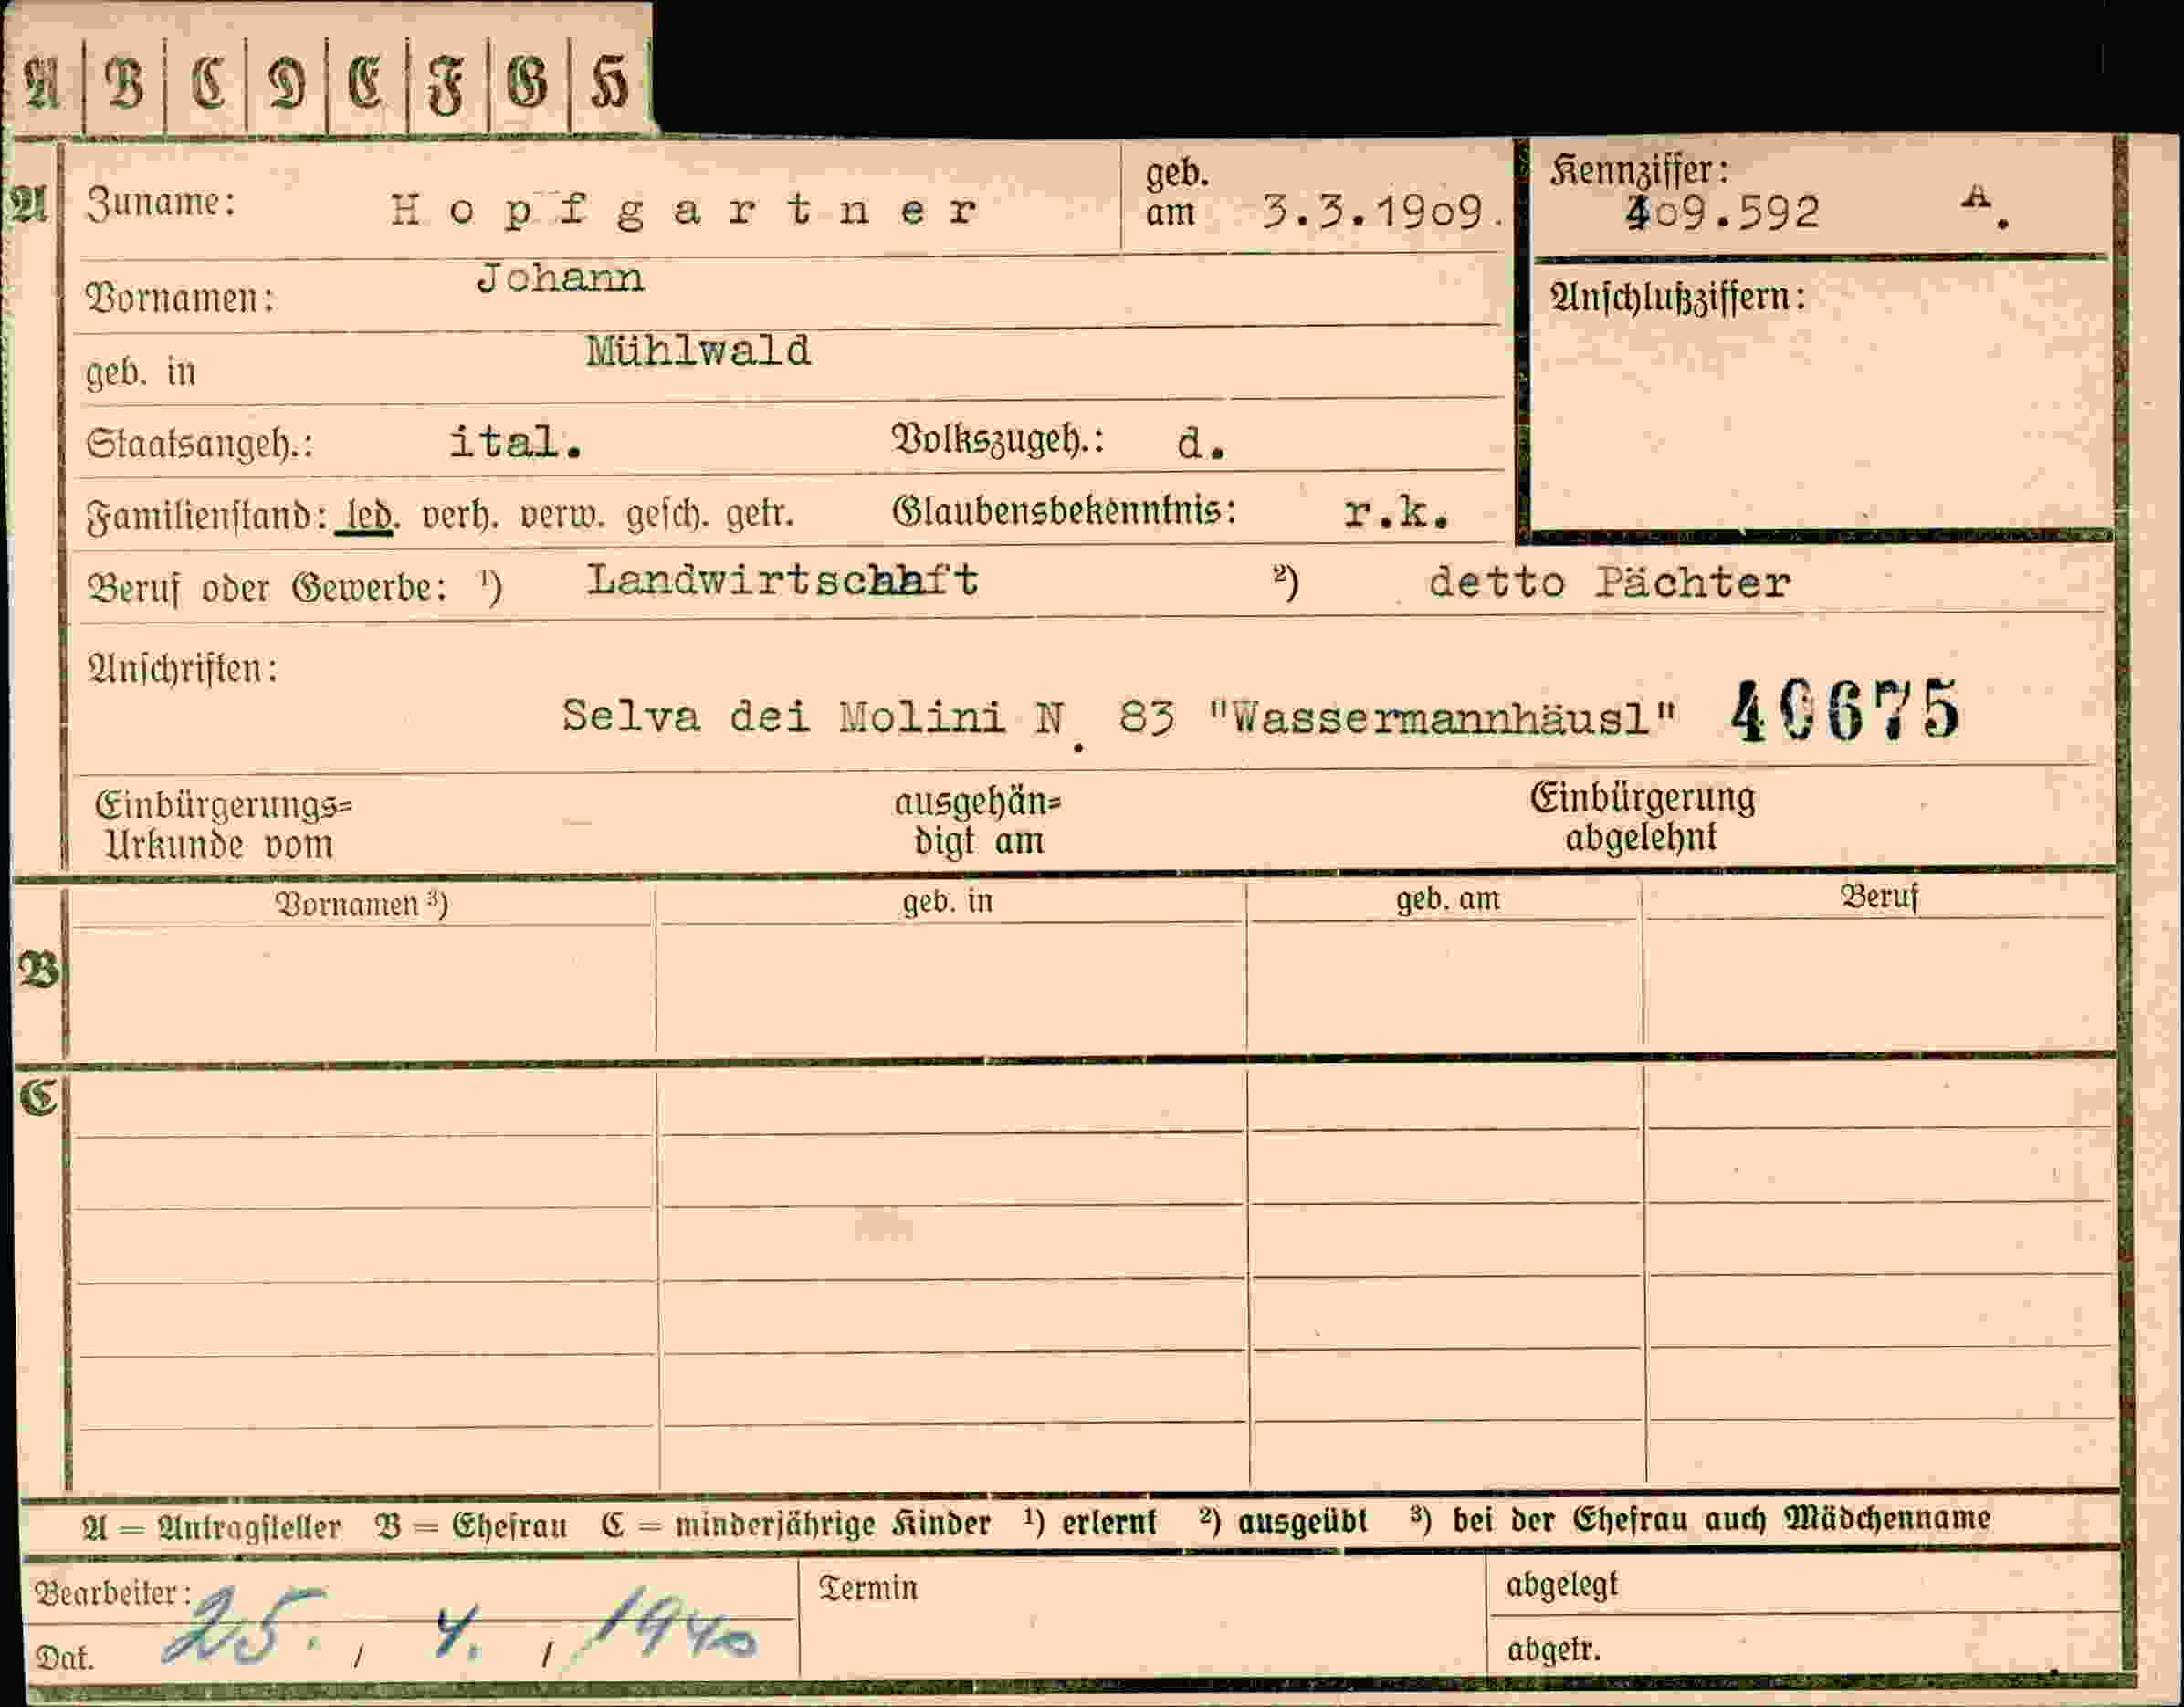 A B C D E F G H
A Zuname: Hopfgartner geb. am 3.3.19o9. Kennziffer: 4o9.592 A.
Vornamen: Johann Anschlußziffern:
geb. in Mühlwald
Staatsangeh.: ital. Volkszugeh.: d.
Familienstand: led. verh. verw. gesch. getr. Glaubensbekenntnis: r.k.
Beruf oder Gewerbe: ¹) Landwirtschaft ²) detto Pächter
Anschriften:
Selva dei Molini N. 83 "Wassermannhäusl" 40675
Einbürgerungs= ausgehän= Einbürgerung
Urkunde vom digt am abgelehnt
Vornamen ³) geb. in geb. am Beruf
B
C
A = Antragsteller B = Ehefrau C = minderjährige Kinder ¹) erlernt ²) ausgeübt ³) bei der Ehefrau auch Mädchenname
Bearbeiter: Termin abgelegt
Dat. 25. / 4. / 1940 abgetr.